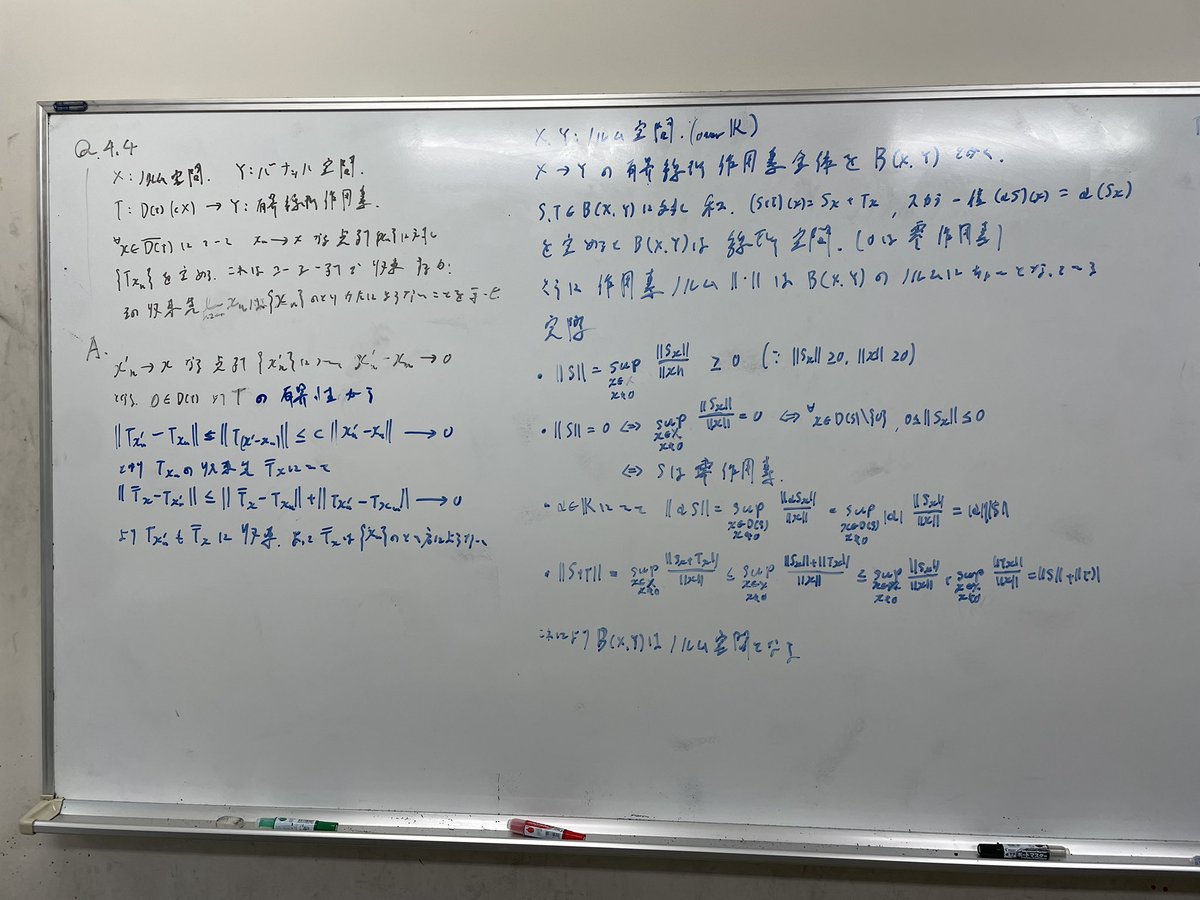 Q.4.4
X: ノルム空間. Y: バナッハ空間.
T: D(T)(⊂X) → Y: 有界線形作用素.
∀x∈D(T) について xₙ→x なる点列{xₙ}に対し
{Txₙ}を定める. これはコーシー列で収束するが
その収束先 {xₙ}のとりかたによらないことを示せ
A.
x'ₙ→x なる点列{x'ₙ}について x'ₙ-xₙ→0
0∈D(T) よりTの有界性から
||Tx'ₙ-Txₙ||≤||T(x'ₙ-xₙ)||≤c||x'ₙ-xₙ||→0
より Txₙの収束先 T̄xについて
||T̄x-Tx'ₙ||≤||T̄x-Txₙ||+||Tx'ₙ-Txₙ||→0
よりTx'ₙもT̄xに収束. よってT̄xは{xₙ}のとり方によらない
X, Y: ノルム空間. (over K)
X→Yの有界線形作用素全体を B(X,Y) とかく.
S,T∈B(X,Y)に対し和. (S+T)(x)=Sx+Tx, スカラー倍(αS)(x)=α(Sx)
を定めると B(X,Y)は線形空間. (0は零作用素)
さらに作用素ノルム||·||はB(X,Y)のノルムになっている
実際
・||S||=sup_{x∈X, x≠0} ||Sx||/||x|| ≥0 (∵||Sx||≥0, ||x||≥0)
・||S||=0 ⇔ sup_{x∈X, x≠0} ||Sx||/||x||=0 ⇔ ∀x∈D(S)\{0}, 0≤||Sx||≤0
⇔ Sは零作用素.
・α∈Kについて ||αS||=sup_{x∈D(S), x≠0} ||αSx||/||x||=sup_{x∈D(S), x≠0} |α| ||Sx||/||x||=|α|||S||
・||S+T||=sup_{x∈X, x≠0} ||Sx+Tx||/||x|| ≤ sup_{x∈X, x≠0} ||Sx||+||Tx||/||x|| ≤ sup_{x∈X, x≠0} ||Sx||/||x||+sup_{x∈X, x≠0} ||Tx||/||x||=||S||+||T||
これにより B(X,Y)はノルム空間となる